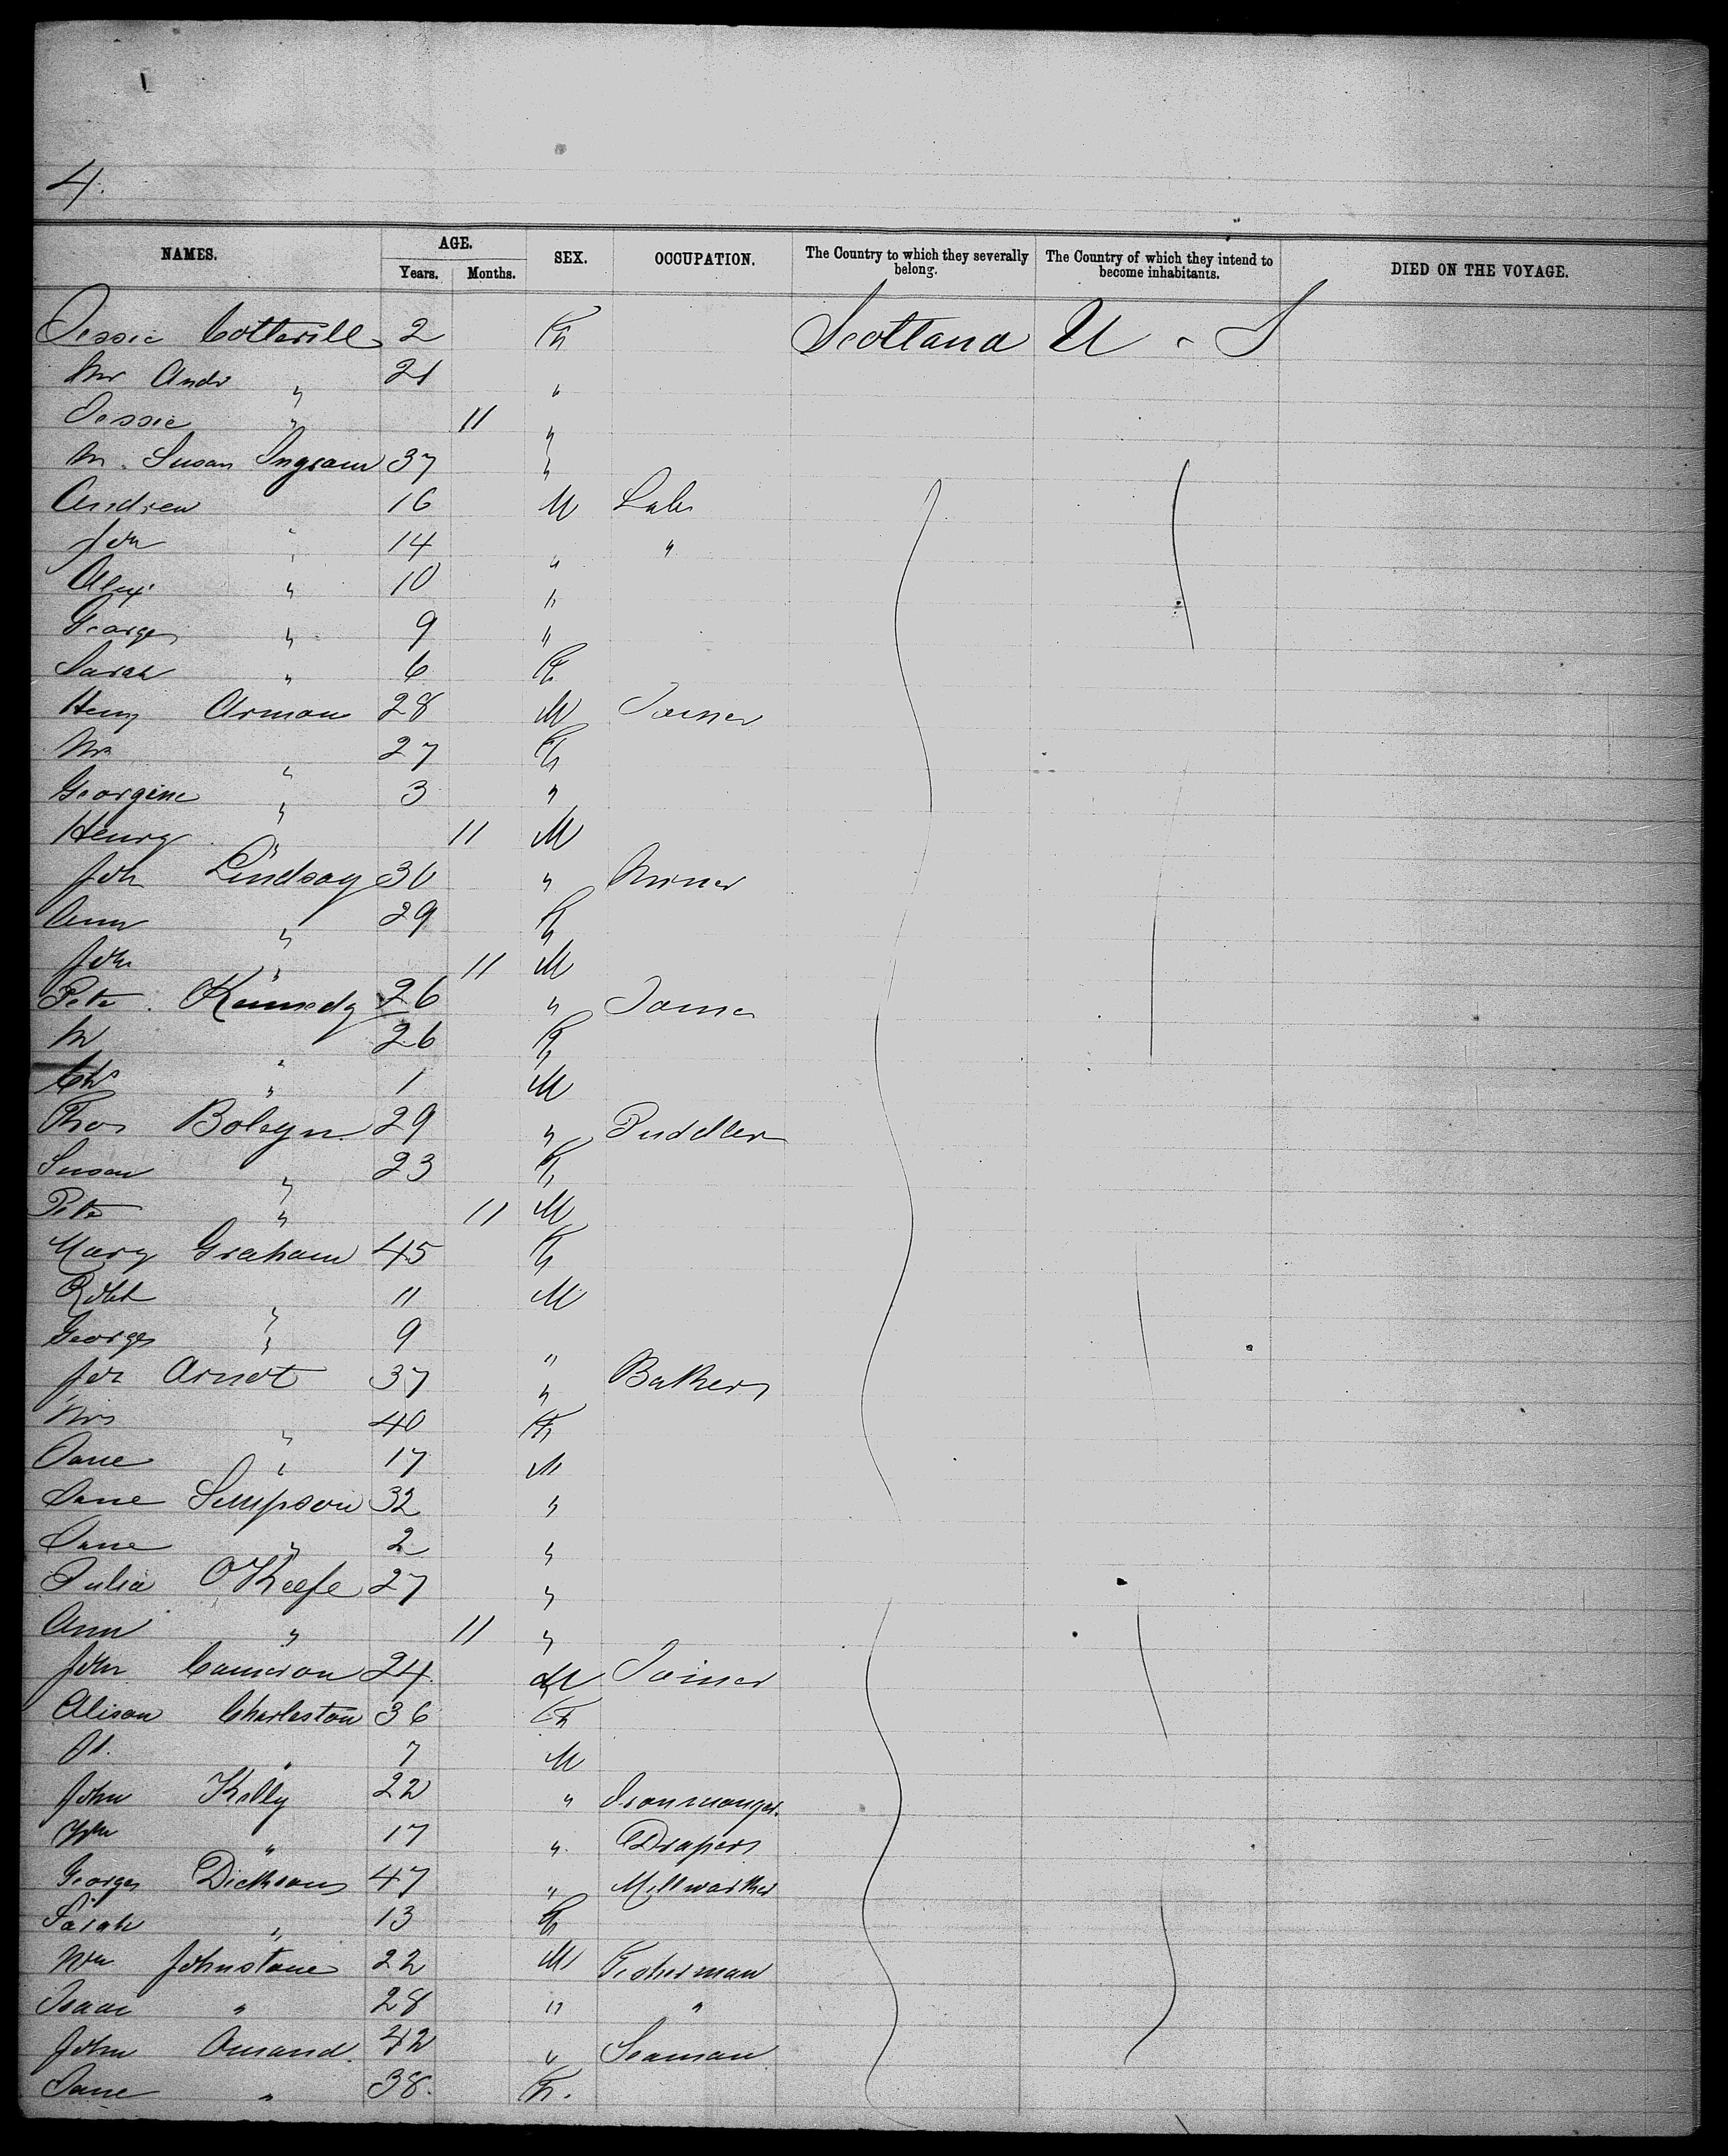 4.
NAMES. AGE. SEX. OCCUPATION. The Country to which they severally belong. The Country of which they intend to become inhabitants. DIED ON THE VOYAGE.
Years. Months.
Jessie Cotterill 2 F Scotland U - S
Mrs Andr " 21 "
Jessie " 11 "
M. Susan Ingram 37 "
Andrew 16 M Labr
John " 14 " "
Alex " 10 "
George " 9 "
Sarah " 6 F
Henry Arman 28 M Joiner
Mrs " 27 F
Georgine " 3 "
Henry " 11 M
John Lindsay 30 " Miner
Ann " 29 F
John " 11 M
Peter Kennedy 26 " Joiner
M " 26 F
Chs " 1 M
Thos Boleyn 29 " Puddler
Susan " 23 F
Peter " 11 M
Mary Graham 45 F
Robt " 11 M
George " 9 "
John Arnot 37 " Baker
Mrs " 40 F
Jane " 17 M
Jane Simpson 32 "
Jane " 2 "
Julia O'Keefe 27 "
Ann " 11 "
John Cameron 24 M Joiner
Alison Charleston 36 F
" 7 M
John Kelly 22 " Ironmonger
Wm " 17 " Draper
George Dickson 47 " Millworker
Sarah " 13 F
Wm Johnstone 22 M Fisherman
Isaac " 28 " "
John Amand 42 " Seaman
Jane " 38. F.